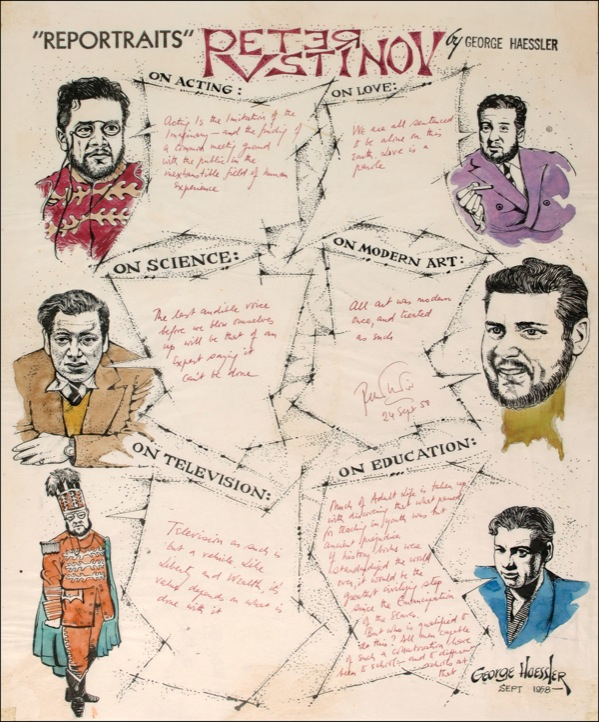 "REPORTRAITS" PETER USTINOV by GEORGE HAESSLER
ON ACTING:
Acting is the Imitation of the
Imaginary — and the finding of
a common meeting ground
with the public in the
inexhaustible field of human
experience
ON LOVE:
We are all sentenced
to be alone on this
Earth, Love is a
parole
ON SCIENCE:
The last audible voice
before we blow ourselves
up will be that of an
Expert saying it
can't be done
ON MODERN ART:
All art was modern
once, and treated
as such
24 Sept 58
ON TELEVISION:
Television as such is
but a vehicle. Like
Liberty, and Wealth, its
value depends on what is
done with it
ON EDUCATION:
Much of Adult Life is taken up
with discovering that what passed
for teaching in youth was but
ancient prejudice
If history books were
standardized the world
over, it would be the
greatest civilizing step
since the Emancipation
of the Slaves.
But who is qualified to
do this? All men capable
of such a collaboration have
been to school — and to different
schools at
that
GEORGE HAESSLER
SEPT 1958